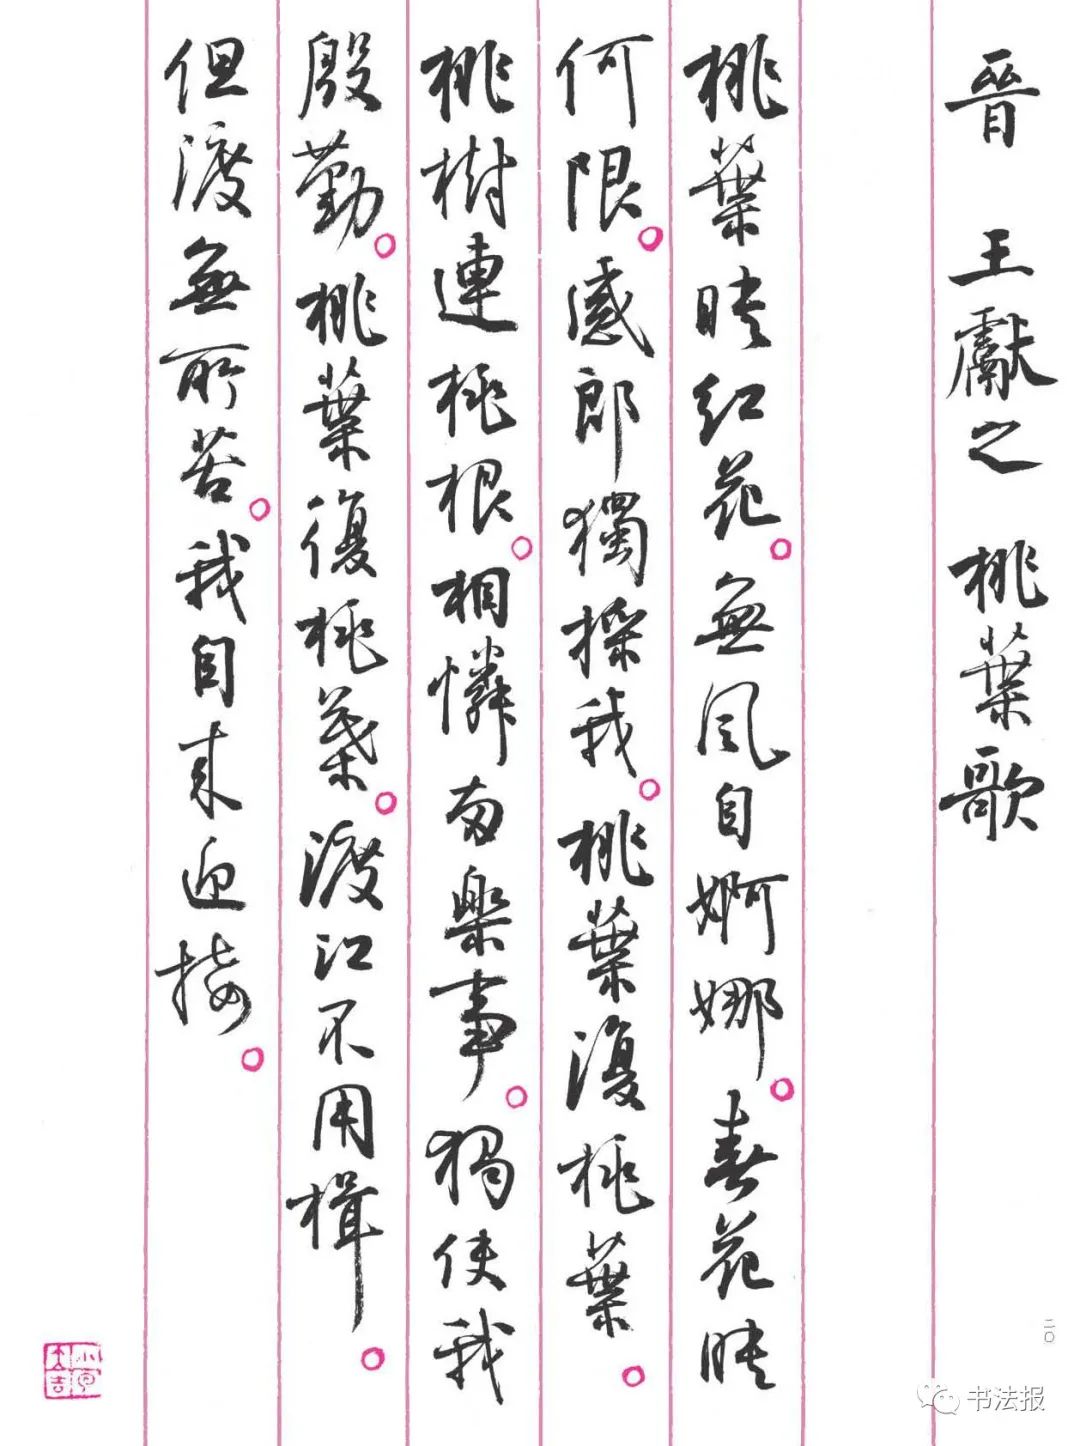 晉 王獻之 桃葉歌
桃葉映紅花。無風自婀娜。春花映
何限。感郎獨採我。桃葉復桃葉。
桃樹連桃根。相憐兩樂事。獨使我
殷勤。桃葉復桃葉。渡江不用楫。
但渡無所苦。我自来迎接。
二〇
书法报